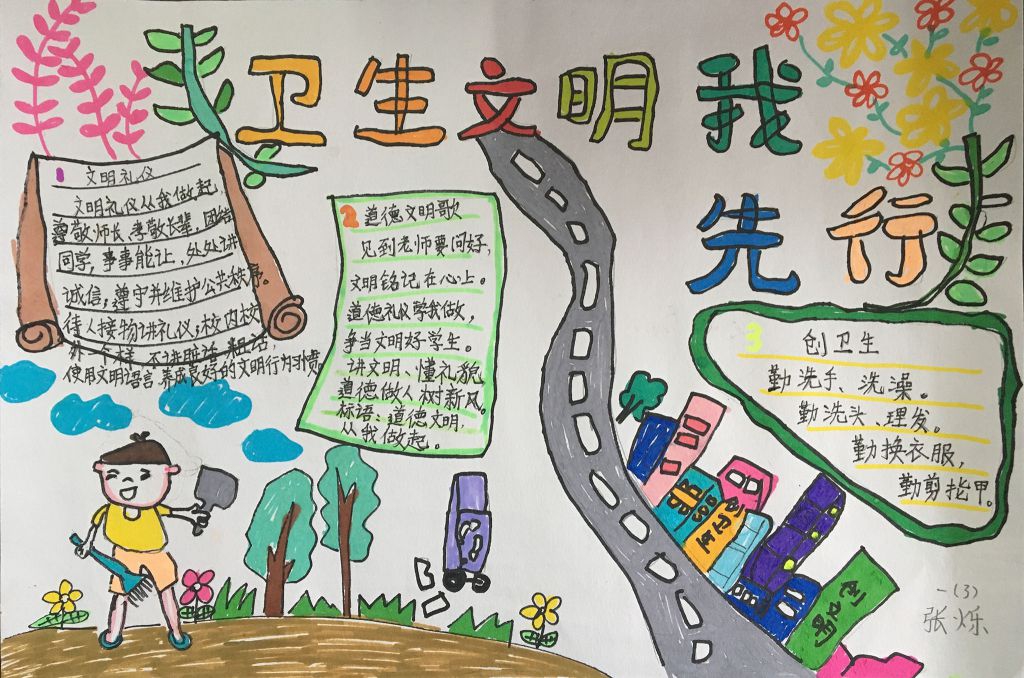 卫生文明我
先行
1 文明礼仪
文明礼仪从我做起,
尊敬师长、孝敬长辈,团结
同学,事事能让,处处讲
诚信;遵守并维护公共秩序。
待人接物讲礼仪;校内校
外一个样,不讲脏话、粗话,
使用文明语言养成良好的文明行为习惯
2 道德文明歌
见到老师要问好,
文明铭记在心上。
道德礼仪 我做,
争当文明好学生。
讲文明、懂礼貌
道德做人树新风。
标语:道德文明,
从我做起。
3 创卫生
勤洗手、洗澡。
勤洗头、理发。
勤换衣服,
勤剪指甲。
一(3)
张烁